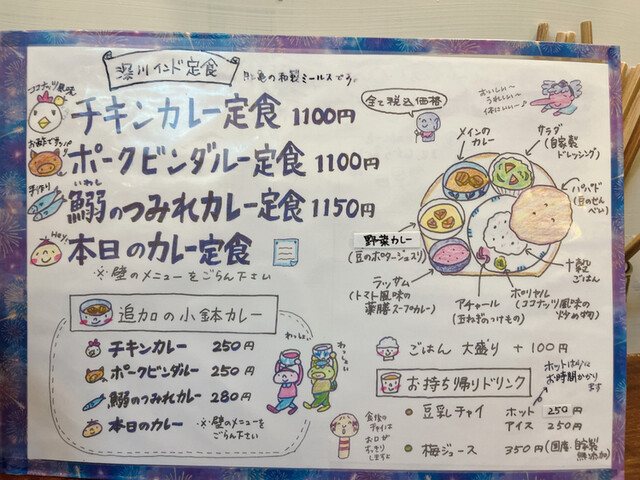 深川インド定食
亀の和製ミールスです。
ココナッツ風味
チキンカレー定食 1100円
お酢でさっぱり
ポークビンダルー定食 1100円
手作り
いわし
鰯のつみれカレー定食 1150円
Hey!
本日のカレー定食
※壁のメニューをごらん下さい
全て税込価格
おいしい〜
うれしい〜
体にいい〜♪
メインのカレー
サラダ
(自家製ドレッシング)
パパド
(豆のせんべい)
野菜カレー
(豆のポタージュスリ)
ラッサム
(トマト風味の薬膳スープカレー)
アチャール
(玉ねぎのつけもの)
ポリヤル
(ココナッツ風味の炒め物)
十穀ごはん
追加の小鉢カレー
チキンカレー 250円
ポークビンダルー 250円
鰯のつみれカレー 280円
本日のカレー ※壁のメニューをごらん下さい
わっしょい
わっしょい
ごはん 大盛り +100円
お持ち帰りドリンク
ホットはちょいお時間かかります
豆乳チャイ ホット 250円
アイス 250円
梅ジュース 350円(国産・自家製 無添加)
食後のチャイはお口がすっきりしますよ